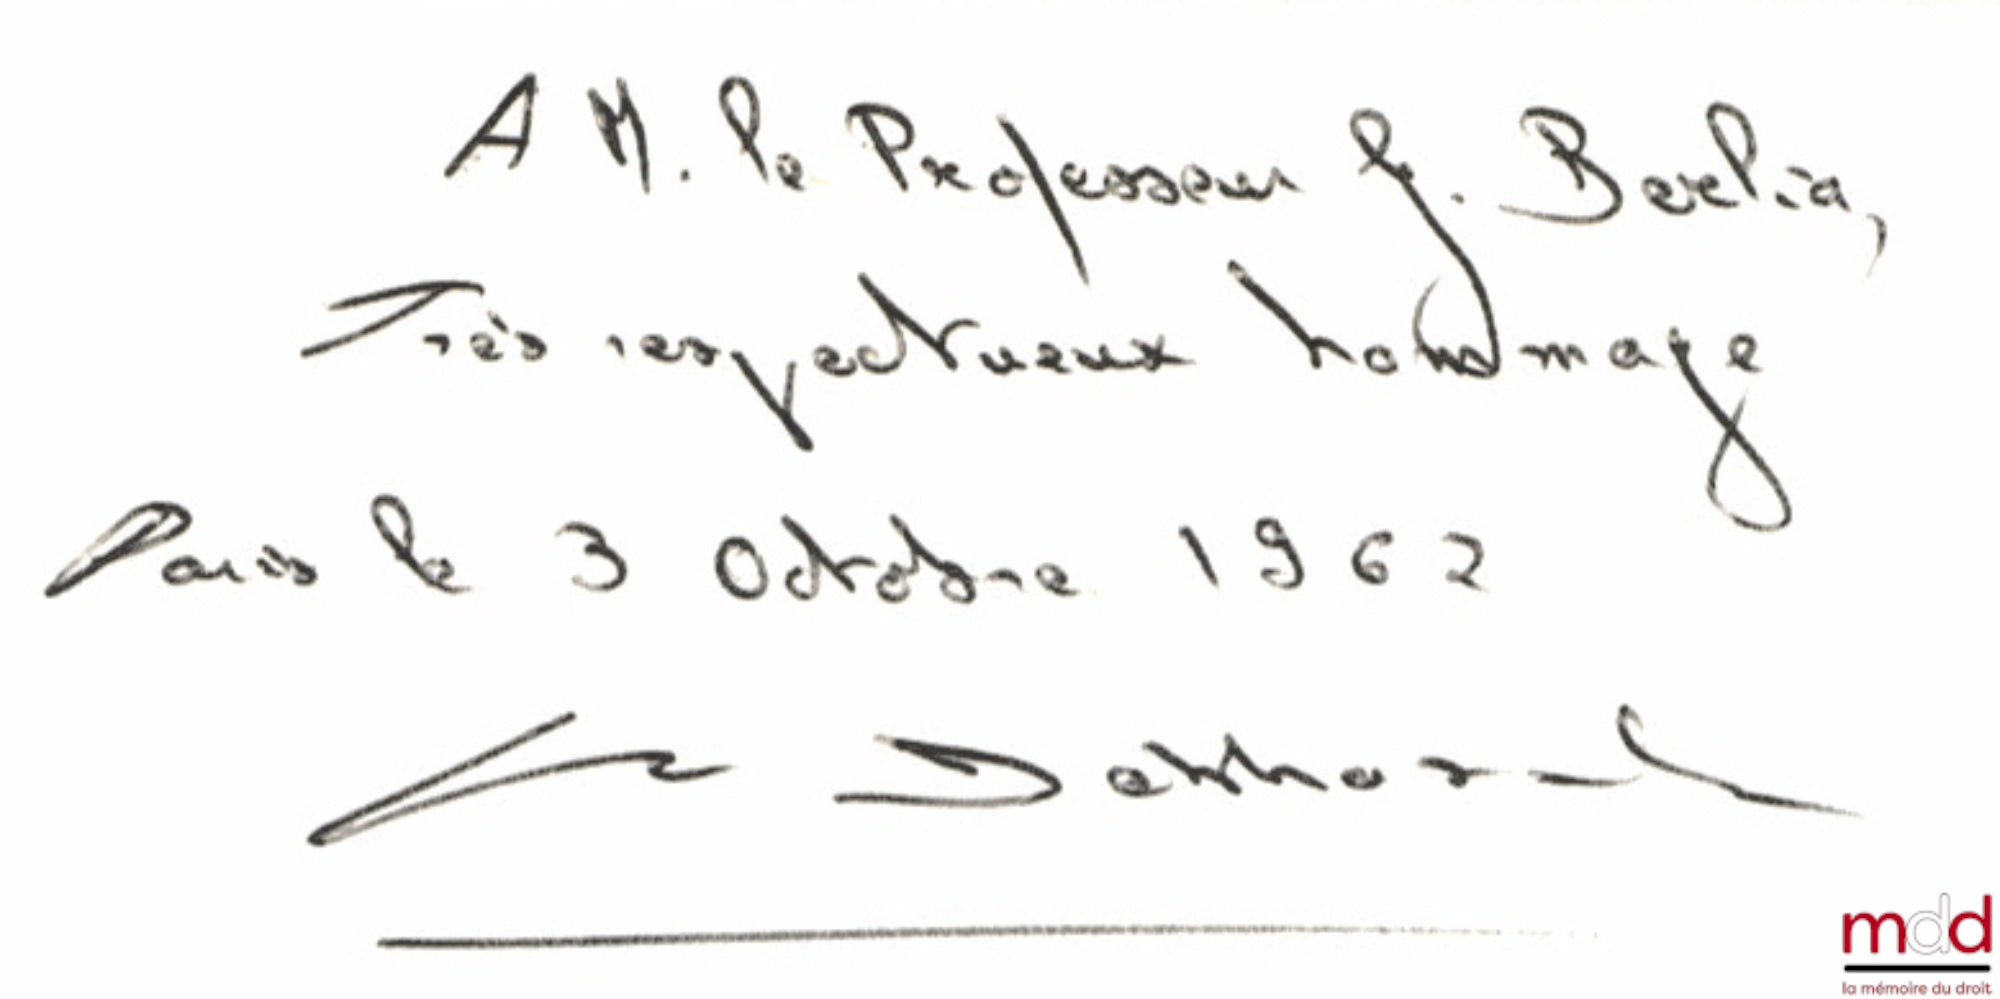 A M. le Professeur G. Berlia,
Très respectueux hommage
Paris le 3 Octobre 1962
mdd
la mémoire du droit